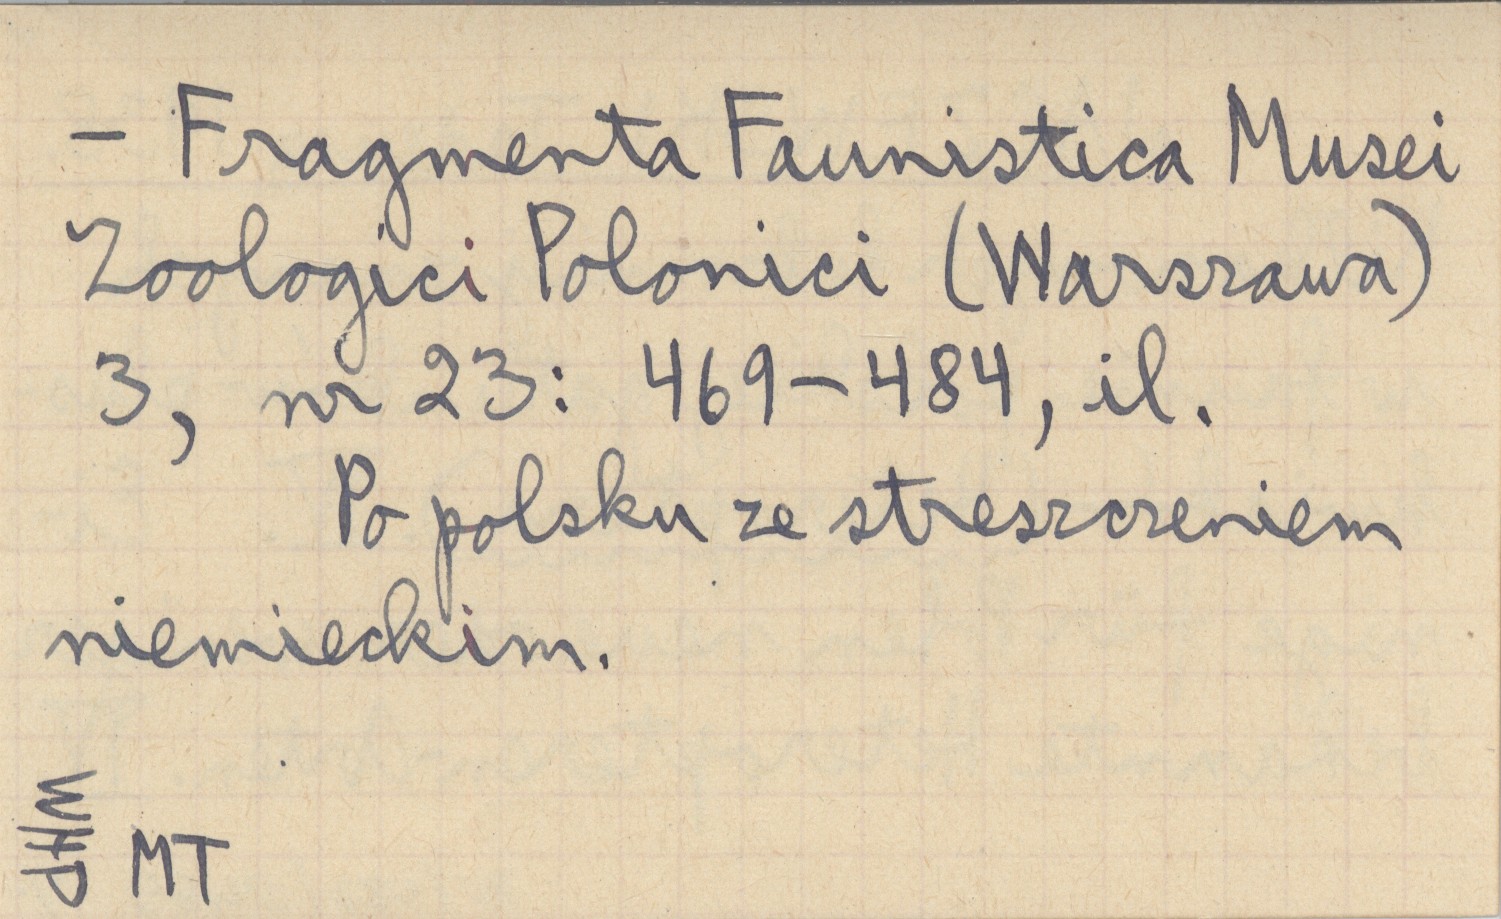 - Fragmenta Faunistica Musei
Zoologici Polonici (Warszawa)
3, nr 23: 469-484, il.
Po polsku ze streszczeniem
niemieckim.
WHP
MT